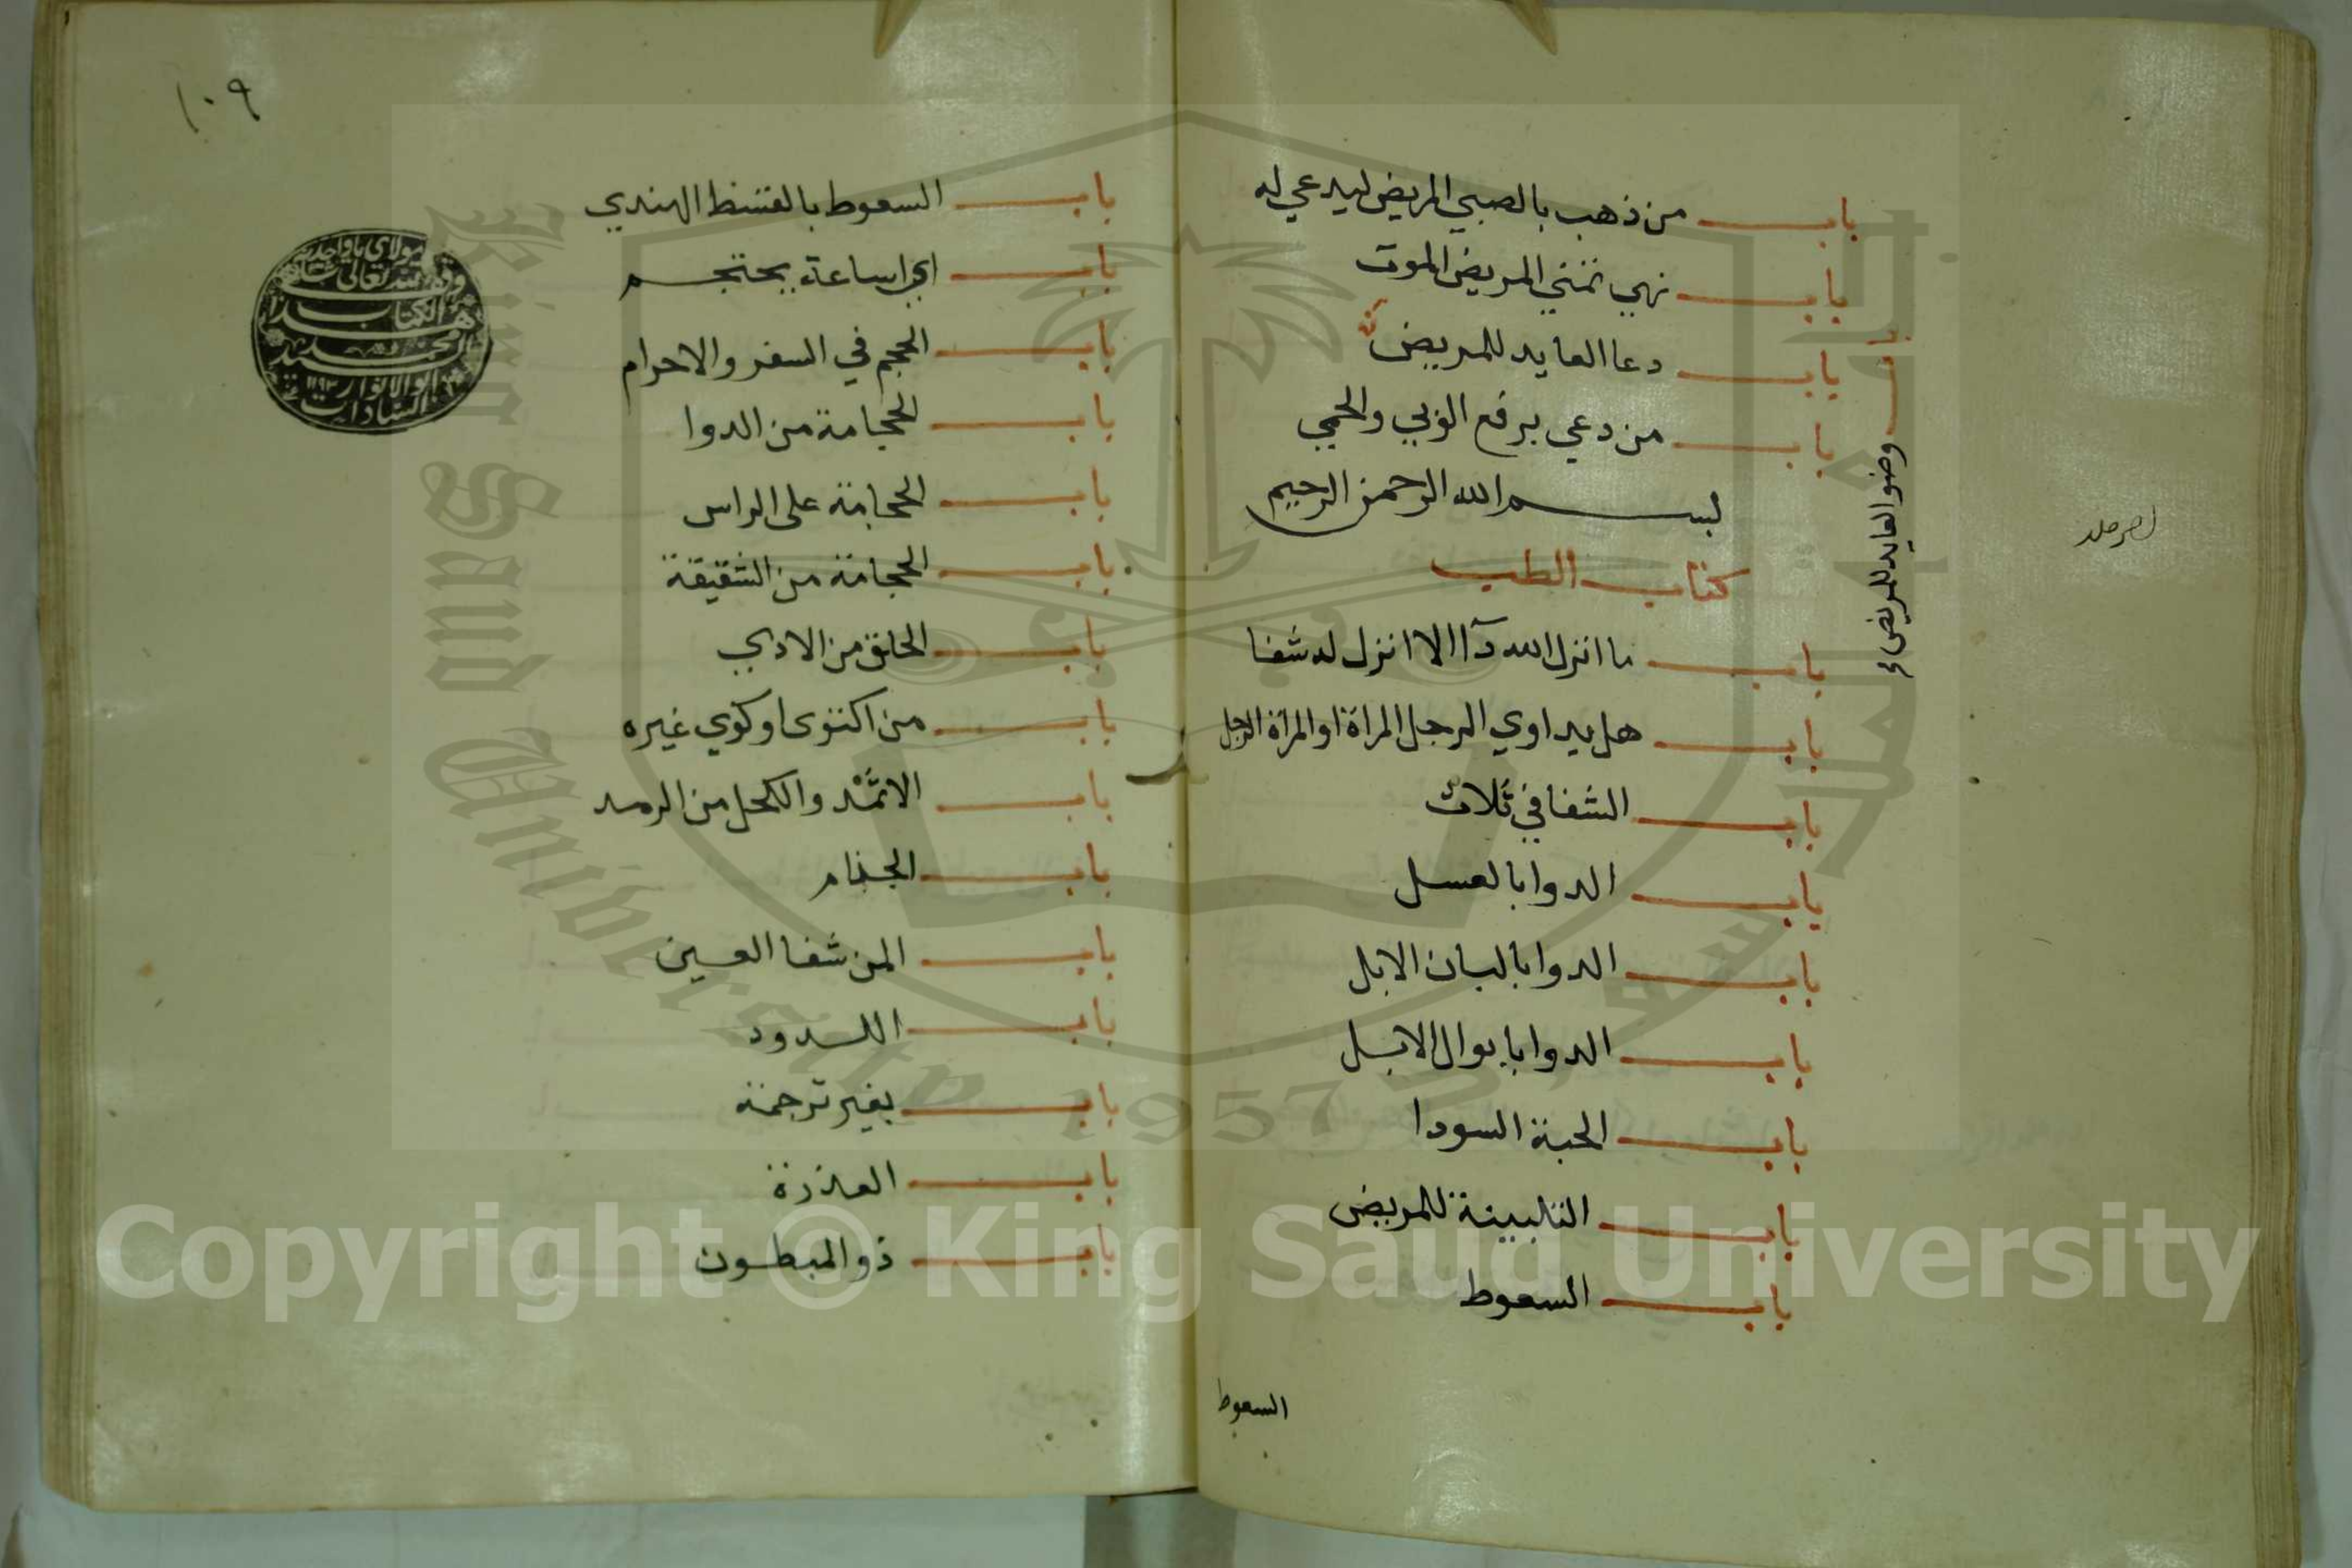 باب من ذهب بالصبي المريض ليدعي له
باب نهي تمني المريض الموت
باب دعا العايد للمريض
باب وضو العايد للمريض
باب من دعي برفع الوبي والحمي
بسم الله الرحمن الرحيم
كتاب الطب
باب ما انزل الله دآا الا انزل له شفا
باب هل يداوي الرجل المراة او المراة الرجل
باب الشفا في ثلاث
باب الدوا بالعسل
باب الدوا بالبان الابل
باب الدوا بابوال الابل
باب الحبة السودا
باب التلبينة للمريض
باب السعوط
السعوط
١٠٩
باب السعوط بالقسط الهندي
باب اي ساعة يحتجم
باب الحجم في السفر والاحرام
باب الحجامة من الدوا
باب الحجامة على الراس
باب الحجامة من الشقيقة
باب الحلق من الاذي
باب من اكتوى او كوي غيره
باب الاثمد والكحل من الرمد
باب الجذام
باب المن شفا العين
باب اللدود
باب بغير ترجمة
باب العذرة
باب ذو المبطون
هذا الكتاب
Copyright © King Saud University
King Saud University
1957